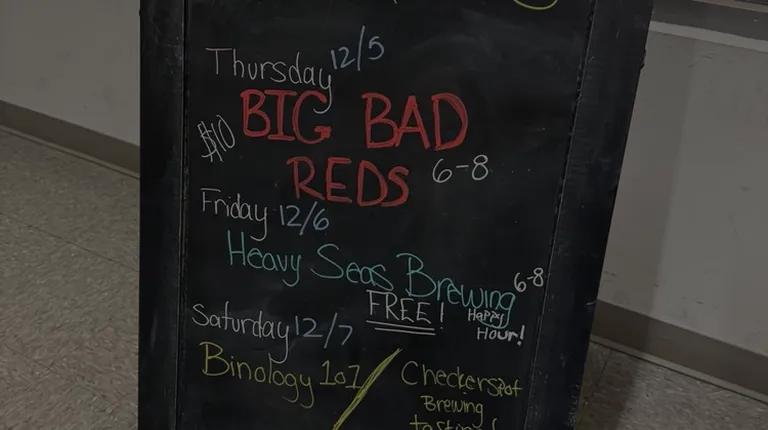 Thursday 12/5
$10 BIG BAD
REDS 6-8
Friday 12/6
Heavy Seas Brewing 6-8
FREE! Happy
Hour!
Saturday 12/7
Binology 101 / Checkerspot
Brewing
tasting!